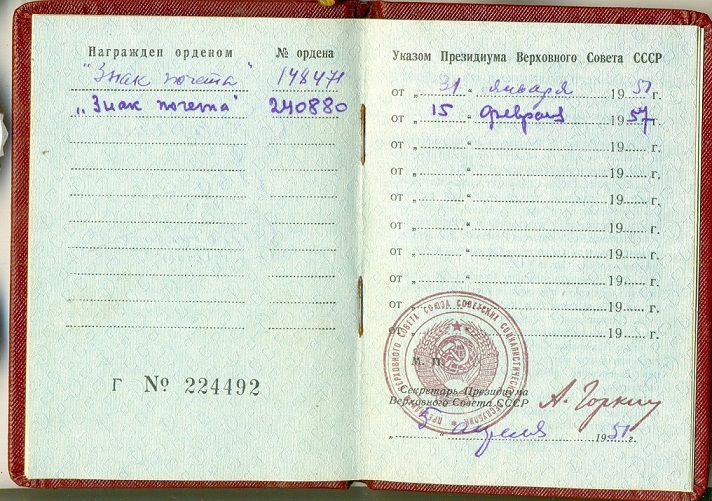 Награжден орденом № ордена
"Знак почета" 148471
„Знак почета" 240880
Г № 224492
Указом Президиума Верховного Совета СССР
от „ 31 " января 1951 г.
от „ 15 " февраля 1957 г.
от „ " 19 г.
от „ " 19 г.
от „ " 19 г.
от „ " 19 г.
от „ " 19 г.
от „ " 19 г.
от „ " 19 г.
от „ " 19 г.
М. П.
Секретарь Президиума
Верховного Совета СССР А. Горкин
„ 5 " апреля 1951 г.